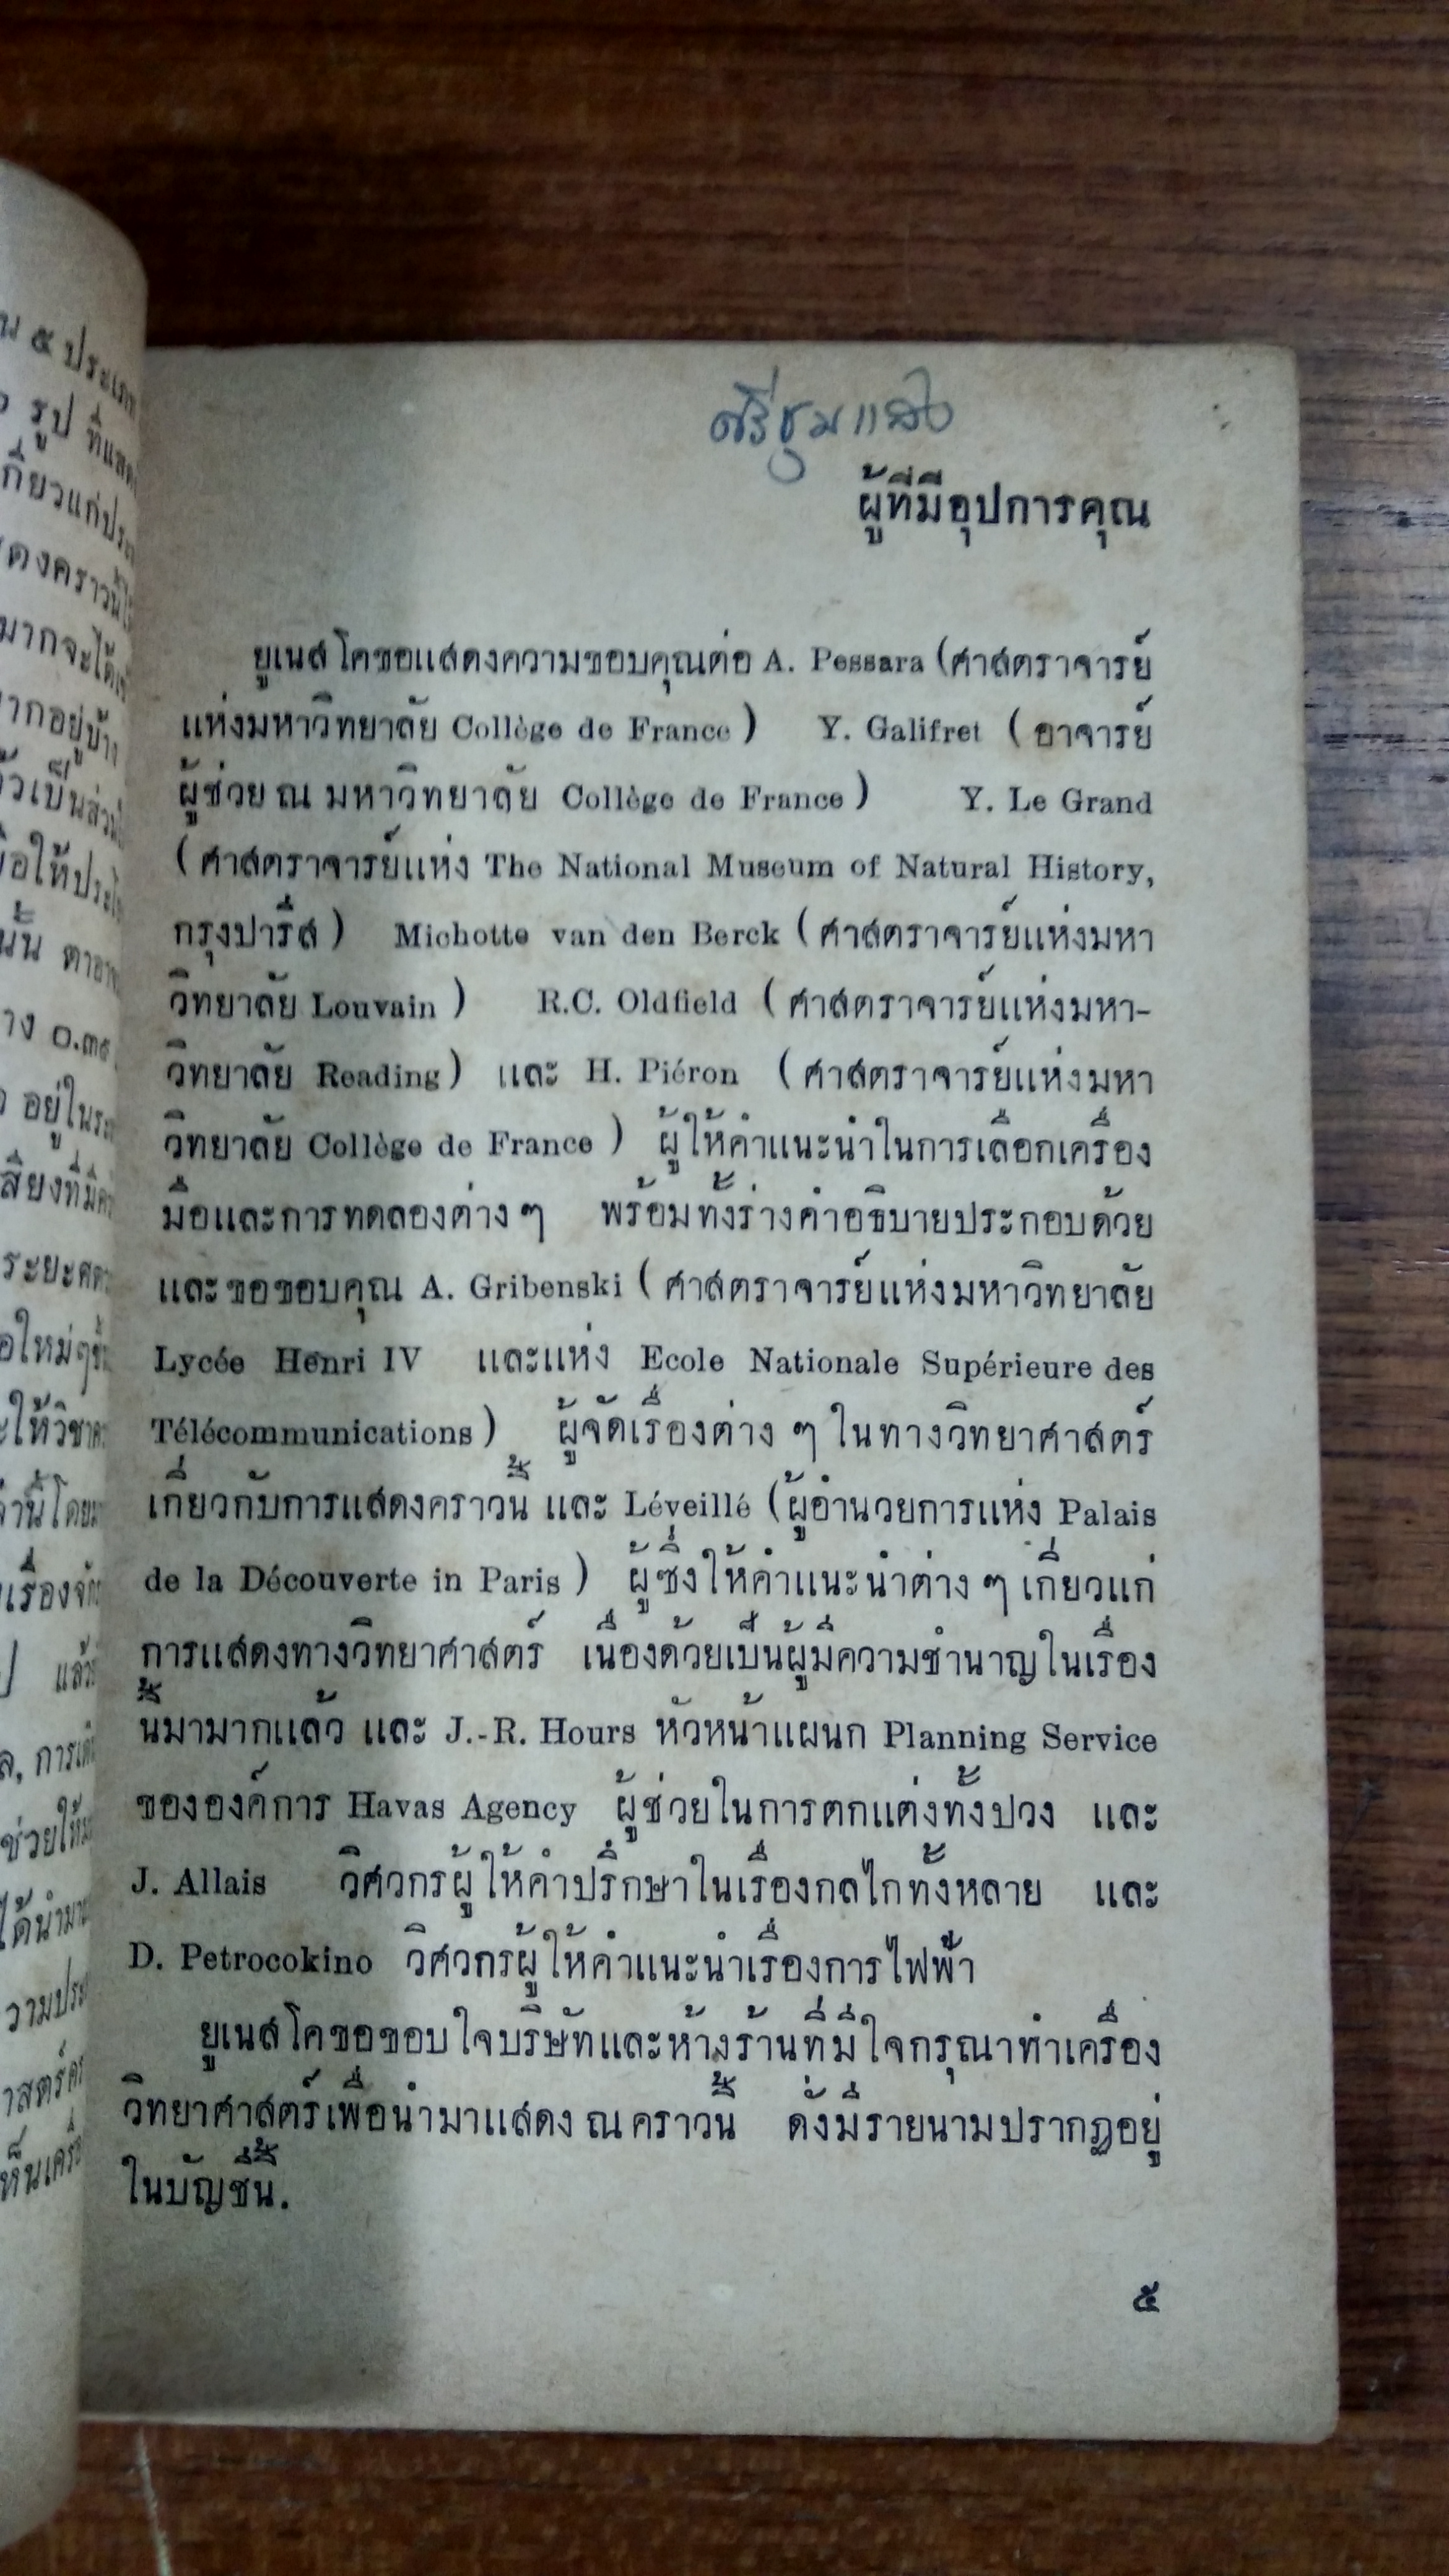 ศรีชุมแสง
ผู้ที่มีอุปการคุณ
ยูเนสโคขอแสดงความขอบคุณต่อ A. Pessara (ศาสตราจารย์
แห่งมหาวิทยาลัย Collège de France) Y. Galifret (อาจารย์
ผู้ช่วย ณ มหาวิทยาลัย Collège de France) Y. Le Grand
(ศาสตราจารย์แห่ง The National Museum of Natural History,
กรุงปารีส) Michotte van den Berck (ศาสตราจารย์แห่งมหา
วิทยาลัย Louvain) R.C. Oldfield (ศาสตราจารย์แห่งมหา-
วิทยาลัย Reading) และ H. Piéron (ศาสตราจารย์แห่งมหา
วิทยาลัย Collège de France) ผู้ให้คำแนะนำในการเลือกเครื่อง
มือและการทดลองต่าง ๆ พร้อมทั้งร่างคำอธิบายประกอบด้วย
และขอขอบคุณ A. Gribenski (ศาสตราจารย์แห่งมหาวิทยาลัย
Lycée Henri IV และแห่ง Ecole Nationale Supérieure des
Télécommunications) ผู้จัดเรื่องต่าง ๆ ในทางวิทยาศาสตร์
เกี่ยวกับการแสดงคราวนี้ และ Léveillé (ผู้อำนวยการแห่ง Palais
de la Découverte in Paris) ผู้ซึ่งให้คำแนะนำต่าง ๆ เกี่ยวแก่
การแสดงทางวิทยาศาสตร์ เนื่องด้วยเป็นผู้มีความชำนาญในเรื่อง
นี้มามากแล้ว และ J.-R. Hours หัวหน้าแผนก Planning Service
ขององค์การ Havas Agency ผู้ช่วยในการตกแต่งทั้งปวง และ
J. Allais วิศวกรผู้ให้คำปรึกษาในเรื่องกลไกทั้งหลาย และ
D. Petrocokino วิศวกรผู้ให้คำแนะนำเรื่องการไฟฟ้า
ยูเนสโคขอขอบใจบริษัทและห้างร้านที่มีใจกรุณาทำเครื่อง
วิทยาศาสตร์เพื่อนำมาแสดง ณ คราวนี้ ดังมีรายนามปรากฏอยู่
ในบัญชีนี้.
๕